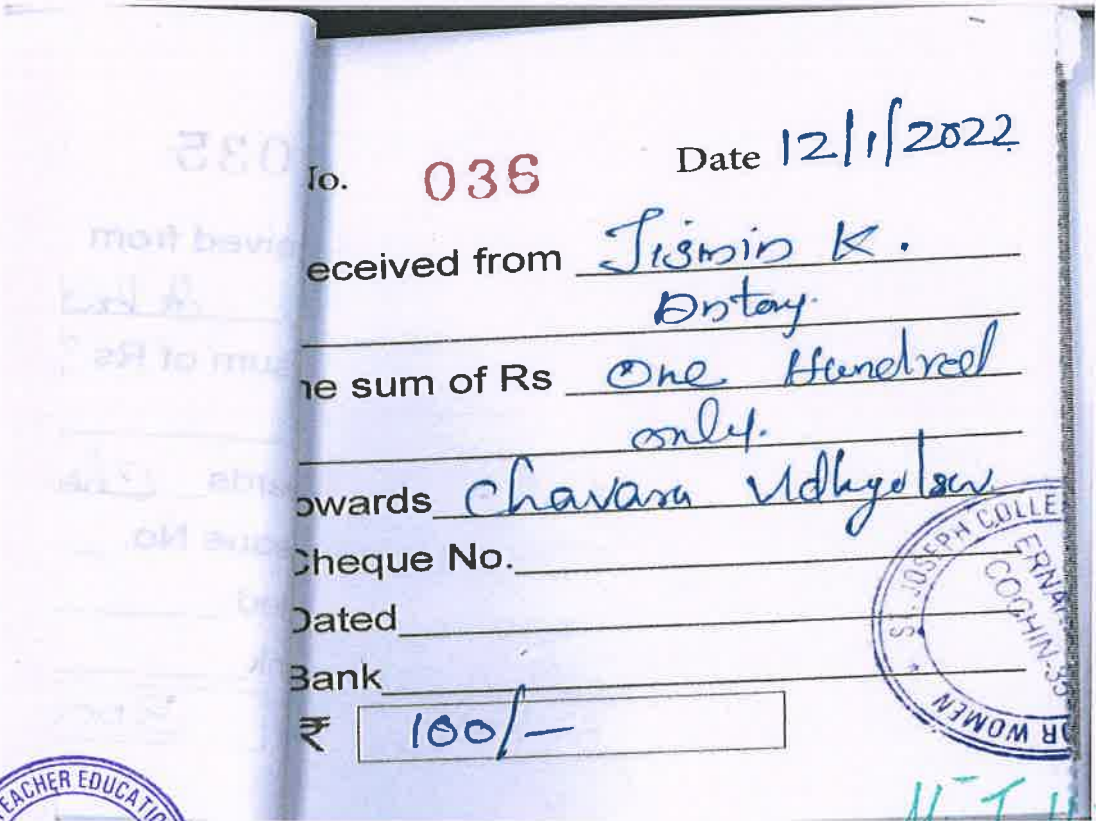 No. 036 Date 12/1/2022
eceived from Jismin K.
Antony.
he sum of Rs One Hundred
only.
owards Chavara
Cheque No.
Dated
Bank
₹ 100/-
ST. JOSEPH COLLE
ERNA
COCHIN-35
OR WOMEN
EACHER EDUCATIO
035